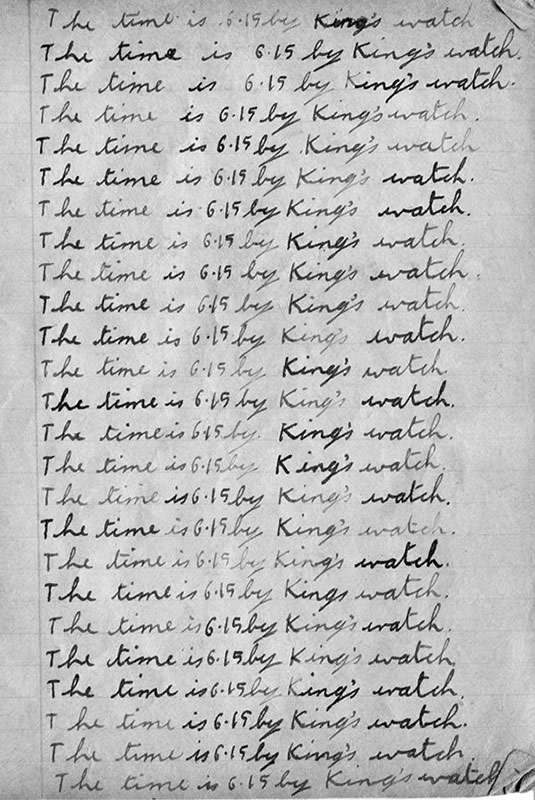 The time is 6·15 by King's watch
The time is 6·15 by King's watch.
The time is 6·15 by King's watch.
The time is 6·15 by King's watch.
The time is 6·15 by King's watch
The time is 6·15 by King's watch.
The time is 6·15 by King's watch.
The time is 6·15 by King's watch.
The time is 6·15 by King's watch.
The time is 6·15 by King's watch.
The time is 6·15 by King's watch.
The time is 6·15 by King's watch.
The time is 6·15 by King's watch.
The time is 6·15 by King's watch.
The time is 6·15 by King's watch.
The time is 6·15 by King's watch.
The time is 6·15 by King's watch.
The time is 6·15 by King's watch.
The time is 6·15 by King's watch.
The time is 6·15 by King's watch.
The time is 6·15 by King's watch
The time is 6·15 by King's watch.
The time is 6·15 by King's watch.
The time is 6·15 by King's watch.
The time is 6·15 by King's watch